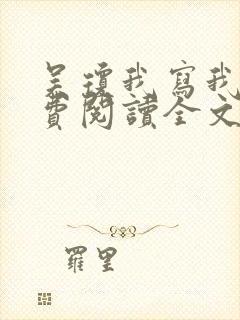 吳瓊我寫我
費閱讀全文
羅里